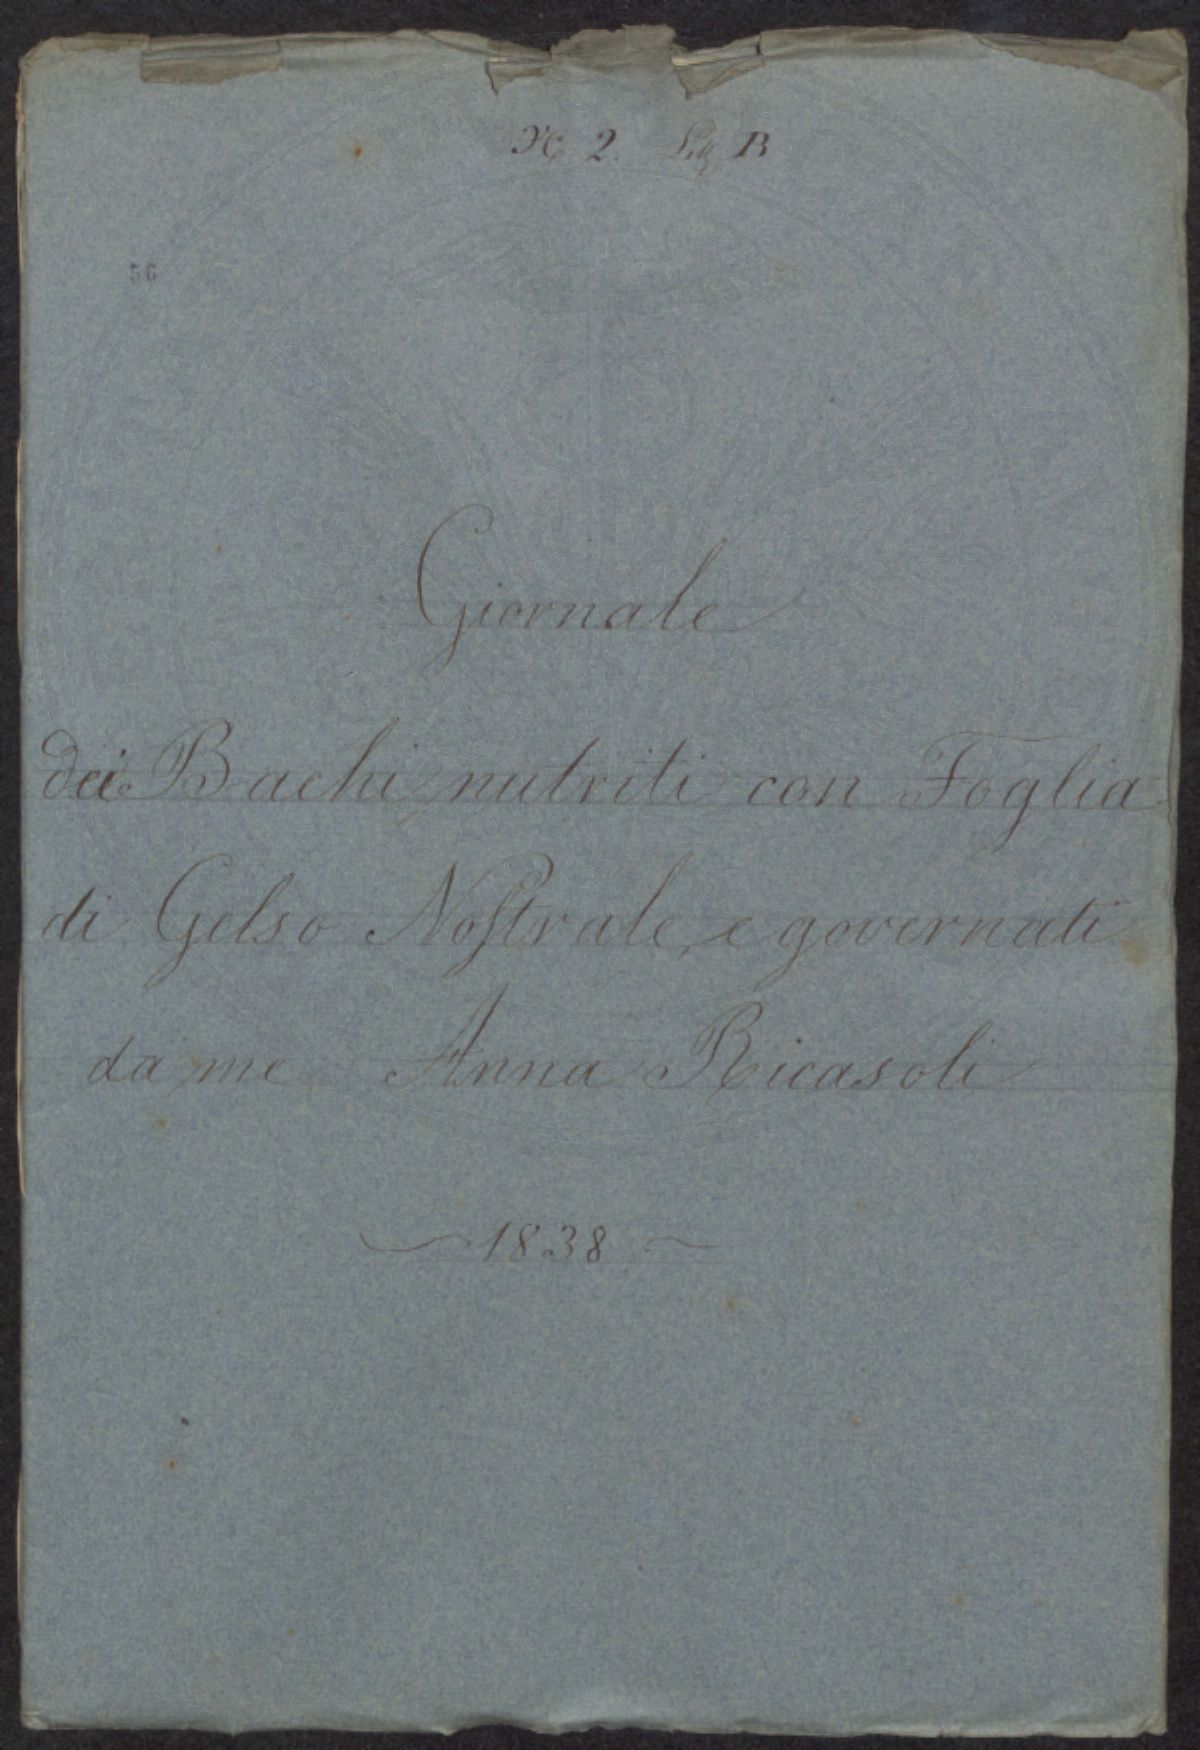 N. 2. B
56
Giornale
dei Bachi nutriti con Foglia
di Gelso Nostrale, e governati
da me Anna Ricasoli
1838